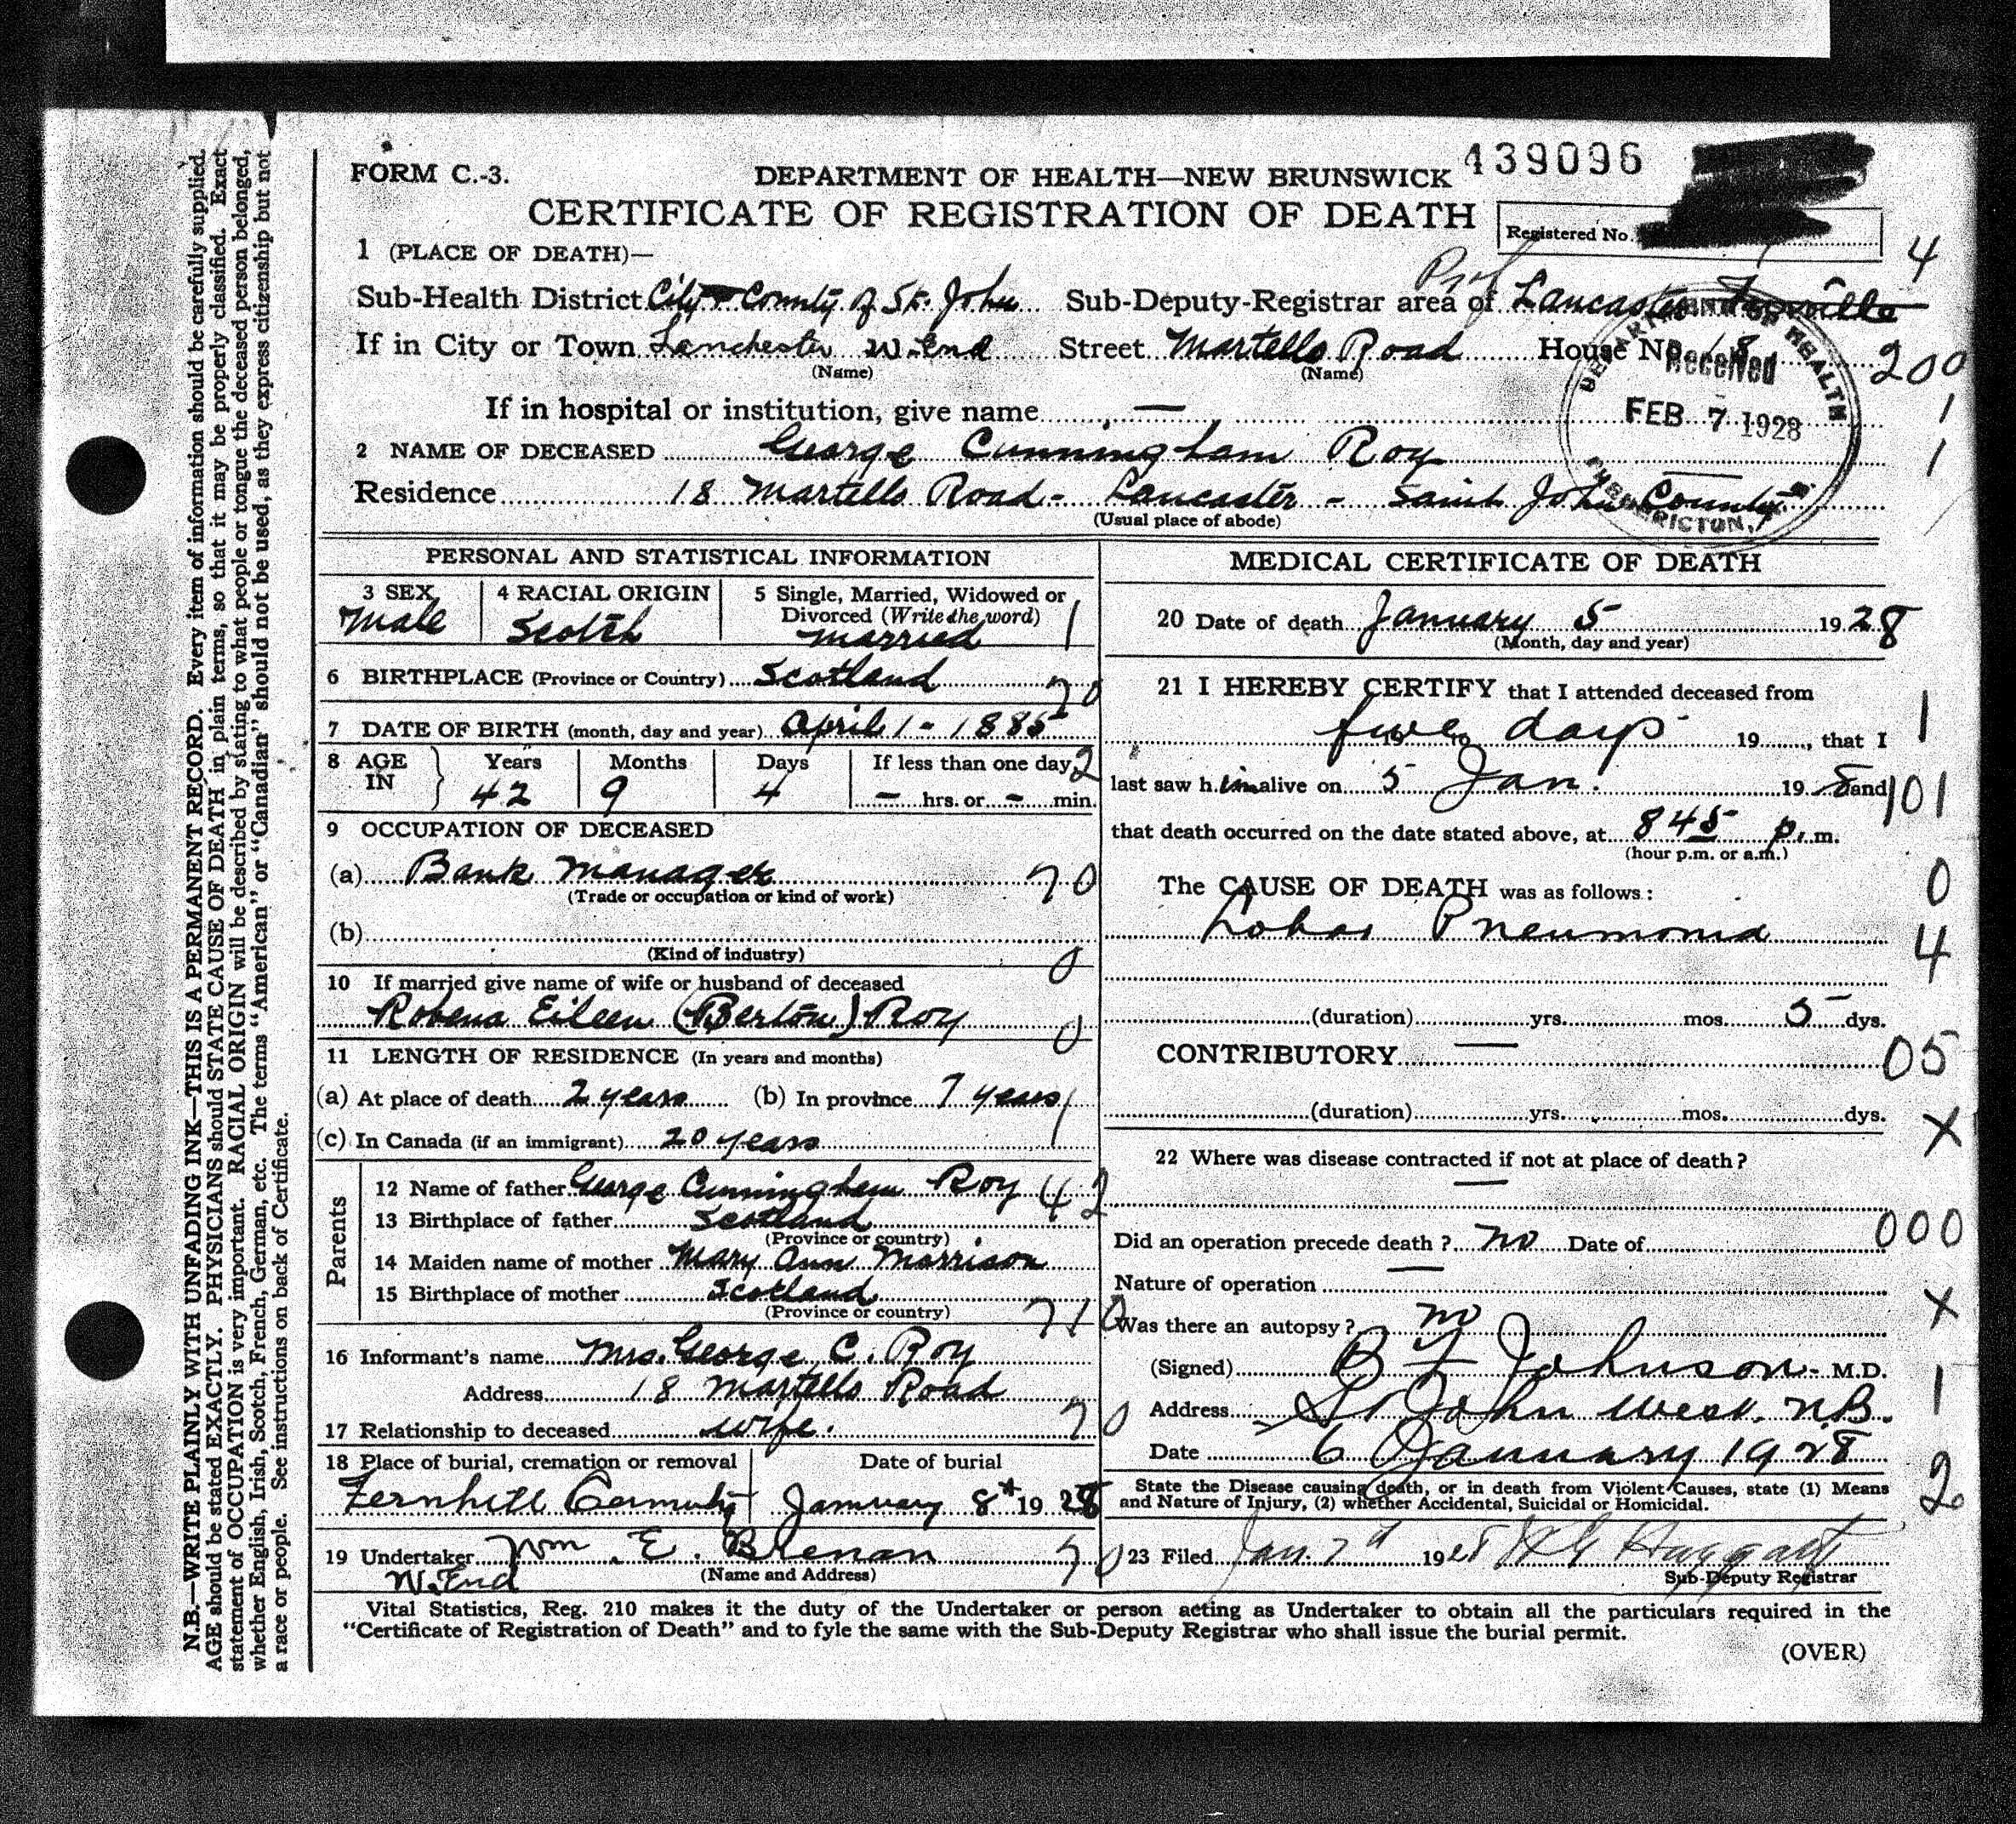 439096
FORM C.-3. DEPARTMENT OF HEALTH—NEW BRUNSWICK
CERTIFICATE OF REGISTRATION OF DEATH
Registered No.
1 (PLACE OF DEATH)— 4
Sub-Health District City & County of St. John Sub-Deputy-Registrar area of Lancaster
If in City or Town Lanchester W. End Street Martello Road House No. 18 200
(Name) (Name)
If in hospital or institution, give name — 1
DEPARTMENT OF HEALTH
Received
FEB 7 1928
FREDERICTON, N.B.
2 NAME OF DECEASED George Cunningham Roy 1
Residence 18 Martello Road - Lancaster - Saint John County
(Usual place of abode)
PERSONAL AND STATISTICAL INFORMATION
3 SEX 4 RACIAL ORIGIN 5 Single, Married, Widowed or
Divorced (Write the word)
Male Scotch married 1
6 BIRTHPLACE (Province or Country) Scotland 70
7 DATE OF BIRTH (month, day and year) April 1 - 1885
8 AGE IN Years Months Days If less than one day 2
42 9 4 — hrs. or — min.
9 OCCUPATION OF DECEASED
(a) Bank Manager 70
(Trade or occupation or kind of work)
(b)
(Kind of industry) 0
10 If married give name of wife or husband of deceased
Robena Eileen (Berton) Roy 0
11 LENGTH OF RESIDENCE (In years and months)
(a) At place of death 2 years (b) In province 7 years 1
(c) In Canada (if an immigrant) 20 years
Parents
12 Name of father George Cunningham Roy 42
13 Birthplace of father Scotland
(Province or country)
14 Maiden name of mother Mary Ann Morrison
15 Birthplace of mother Scotland
(Province or country) 710
16 Informant's name Mrs. George C. Roy
Address 18 Martello Road
17 Relationship to deceased wife. 70
18 Place of burial, cremation or removal Date of burial
Fernhill January 8th 1928
19 Undertaker Wm. E. Brenan 70
W. End (Name and Address)
MEDICAL CERTIFICATE OF DEATH
20 Date of death January 5 1928
(Month, day and year)
21 I HEREBY CERTIFY that I attended deceased from 1
five days 19 to 19 , that I
last saw h im alive on 5 Jan. 19 8 and 101
that death occurred on the date stated above, at 8 45 p. m.
(hour p.m. or a.m.)
The CAUSE OF DEATH was as follows: 0
Lobar Pneumonia 4
(duration) yrs. mos. 5 dys.
CONTRIBUTORY — 05
(duration) yrs. mos. dys. X
22 Where was disease contracted if not at place of death?
—
Did an operation precede death? no Date of 000
Nature of operation — X
Was there an autopsy? no
(Signed) B F Johnson - M.D. 1
Address St John West. N.B.
Date 6 January 1928
State the Disease causing death, or in death from Violent Causes, state (1) Means 2
and Nature of Injury, (2) whether Accidental, Suicidal or Homicidal.
23 Filed Jan. 7th 1928 Haggart
Sub-Deputy Registrar
Vital Statistics, Reg. 210 makes it the duty of the Undertaker or person acting as Undertaker to obtain all the particulars required in the
"Certificate of Registration of Death" and to fyle the same with the Sub-Deputy Registrar who shall issue the burial permit.
(OVER)
N.B.—WRITE PLAINLY WITH UNFADING INK—THIS IS A PERMANENT RECORD. Every item of information should be carefully supplied.
AGE should be stated EXACTLY. PHYSICIANS should STATE CAUSE OF DEATH in plain terms, so that it may be properly classified. Exact
statement of OCCUPATION is very important. RACIAL ORIGIN will be described by stating to what people or tongue the deceased person belonged,
whether English, Irish, Scotch, French, German, etc. The terms "American" or "Canadian" should not be used, as they express citizenship but not
a race or people. See instructions on back of Certificate.